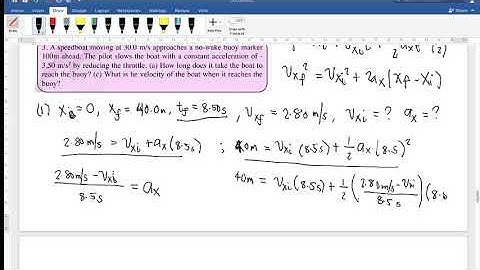 File Home Insert Draw Design Layout References Mailings Review View Help
3. A speedboat moving at 30.0 m/s approaches a no-wake buoy marker
100m ahead. The pilot slows the boat with a constant acceleration of -
3.50 m/s² by reducing the throttle. (a) How long does it take the boat to
reach the buoy? (c) What is he velocity of the boat when it reaches the
buoy?
(2)
Vxf² = Vxi² + 2ax (xf - xi)
(1) xi = 0, xf = 40.0m, tf = 8.50s, Vxf = 2.80 m/s, Vxi = ? ax = ?
2.80 m/s = Vxi + ax (8.5s) ; 40m = Vxi (8.5s) + 1/2 ax (8.5)²
(2.80 m/s - Vxi)/8.5s = ax 40m = Vxi (8.5s) + 1/2 ((2.80 m/s - Vxi)/8.5s) (8.